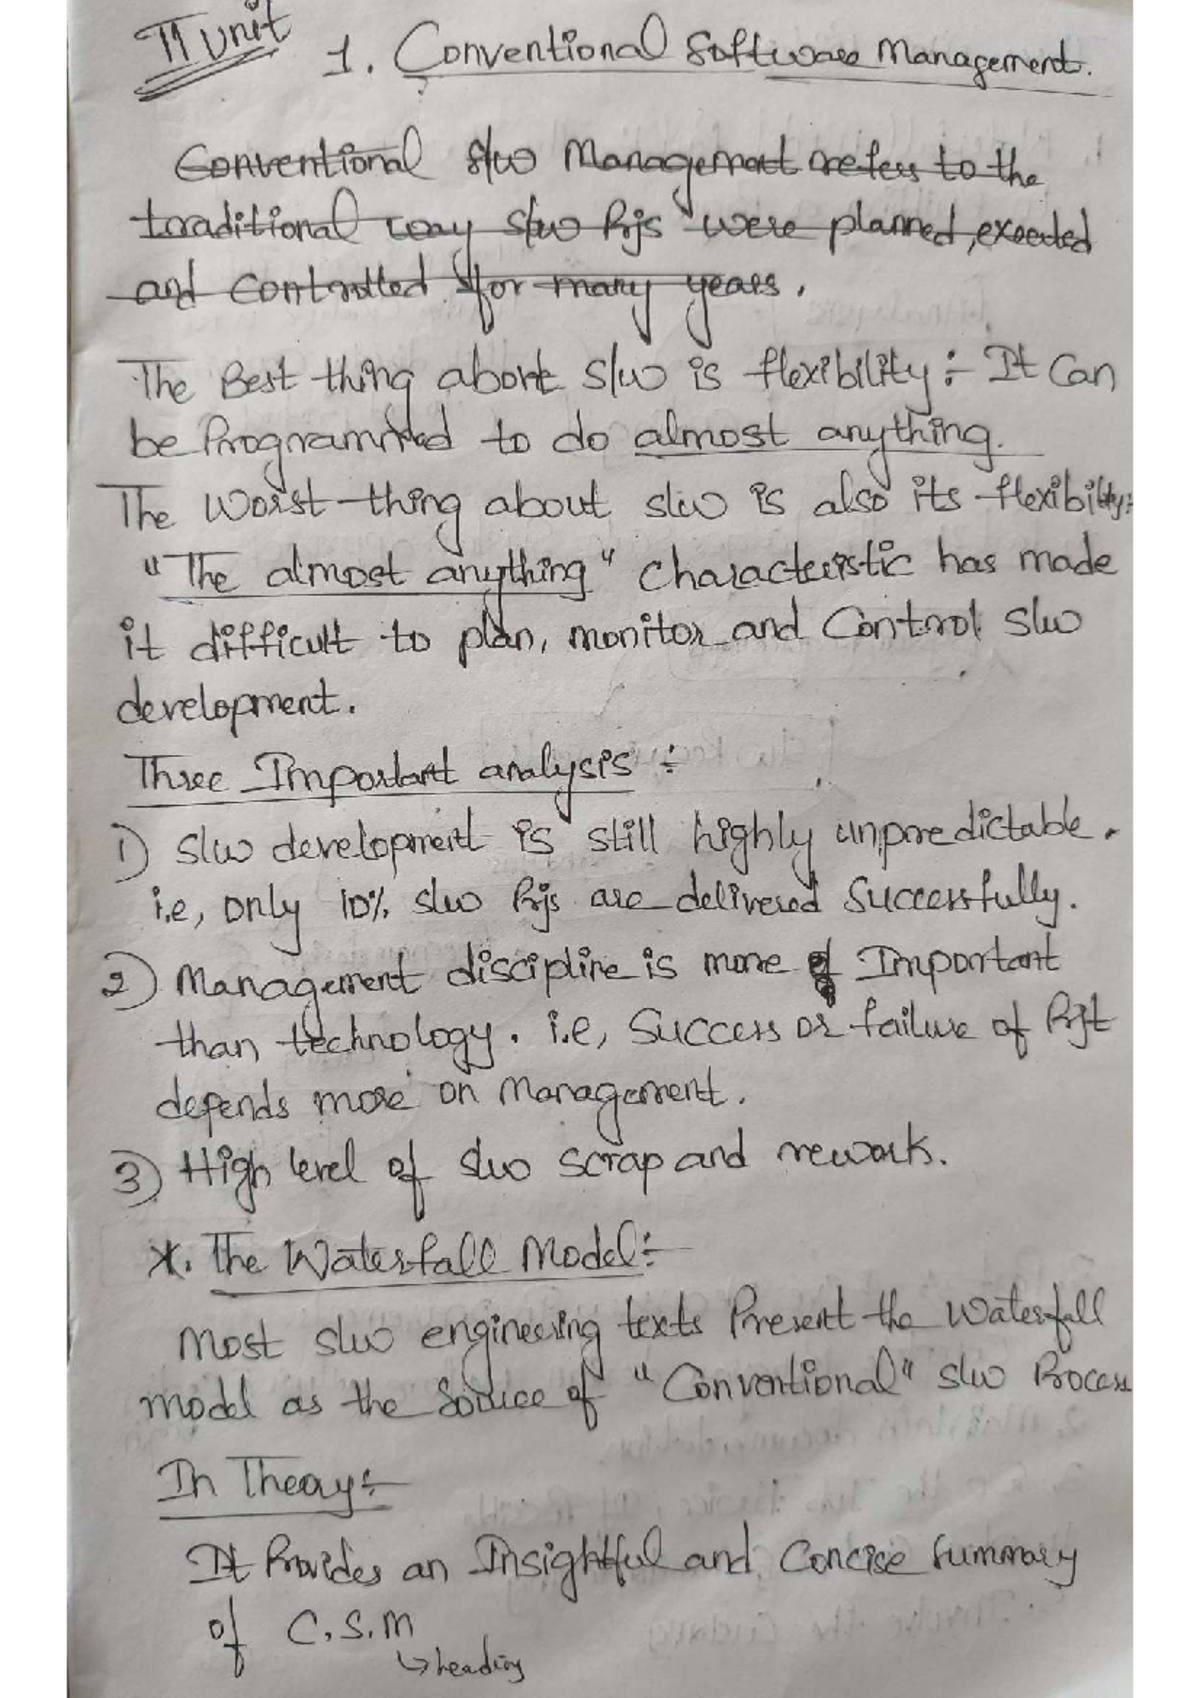 II unit
1. Conventional Software Management.
Conventional s/w Management refers to the
traditional way s/w Prjs were planned, executed
and controlled for many years.
The Best thing about s/w is flexibility :- It Can
be Programmed to do almost anything.
The Worst thing about s/w is also its flexibility:
"The almost anything" characteristic has made
it difficult to plan, monitor and Control s/w
development.
Three Important analysis :-
1) s/w development is still highly unpredictable.
i.e, only 10% s/w Prjs are delivered Successfully.
2) Management discipline is more Important
than technology. i.e, Success or failure of Prjt
depends more on Management.
3) High level of s/w scrap and rework.
*. The Waterfall Model:-
Most s/w engineering texts Present the Waterfall
model as the Source of "Conventional" s/w Process
In Theory:-
It Provides an Insightful and Concise Summary
of C.S.M
↳ heading